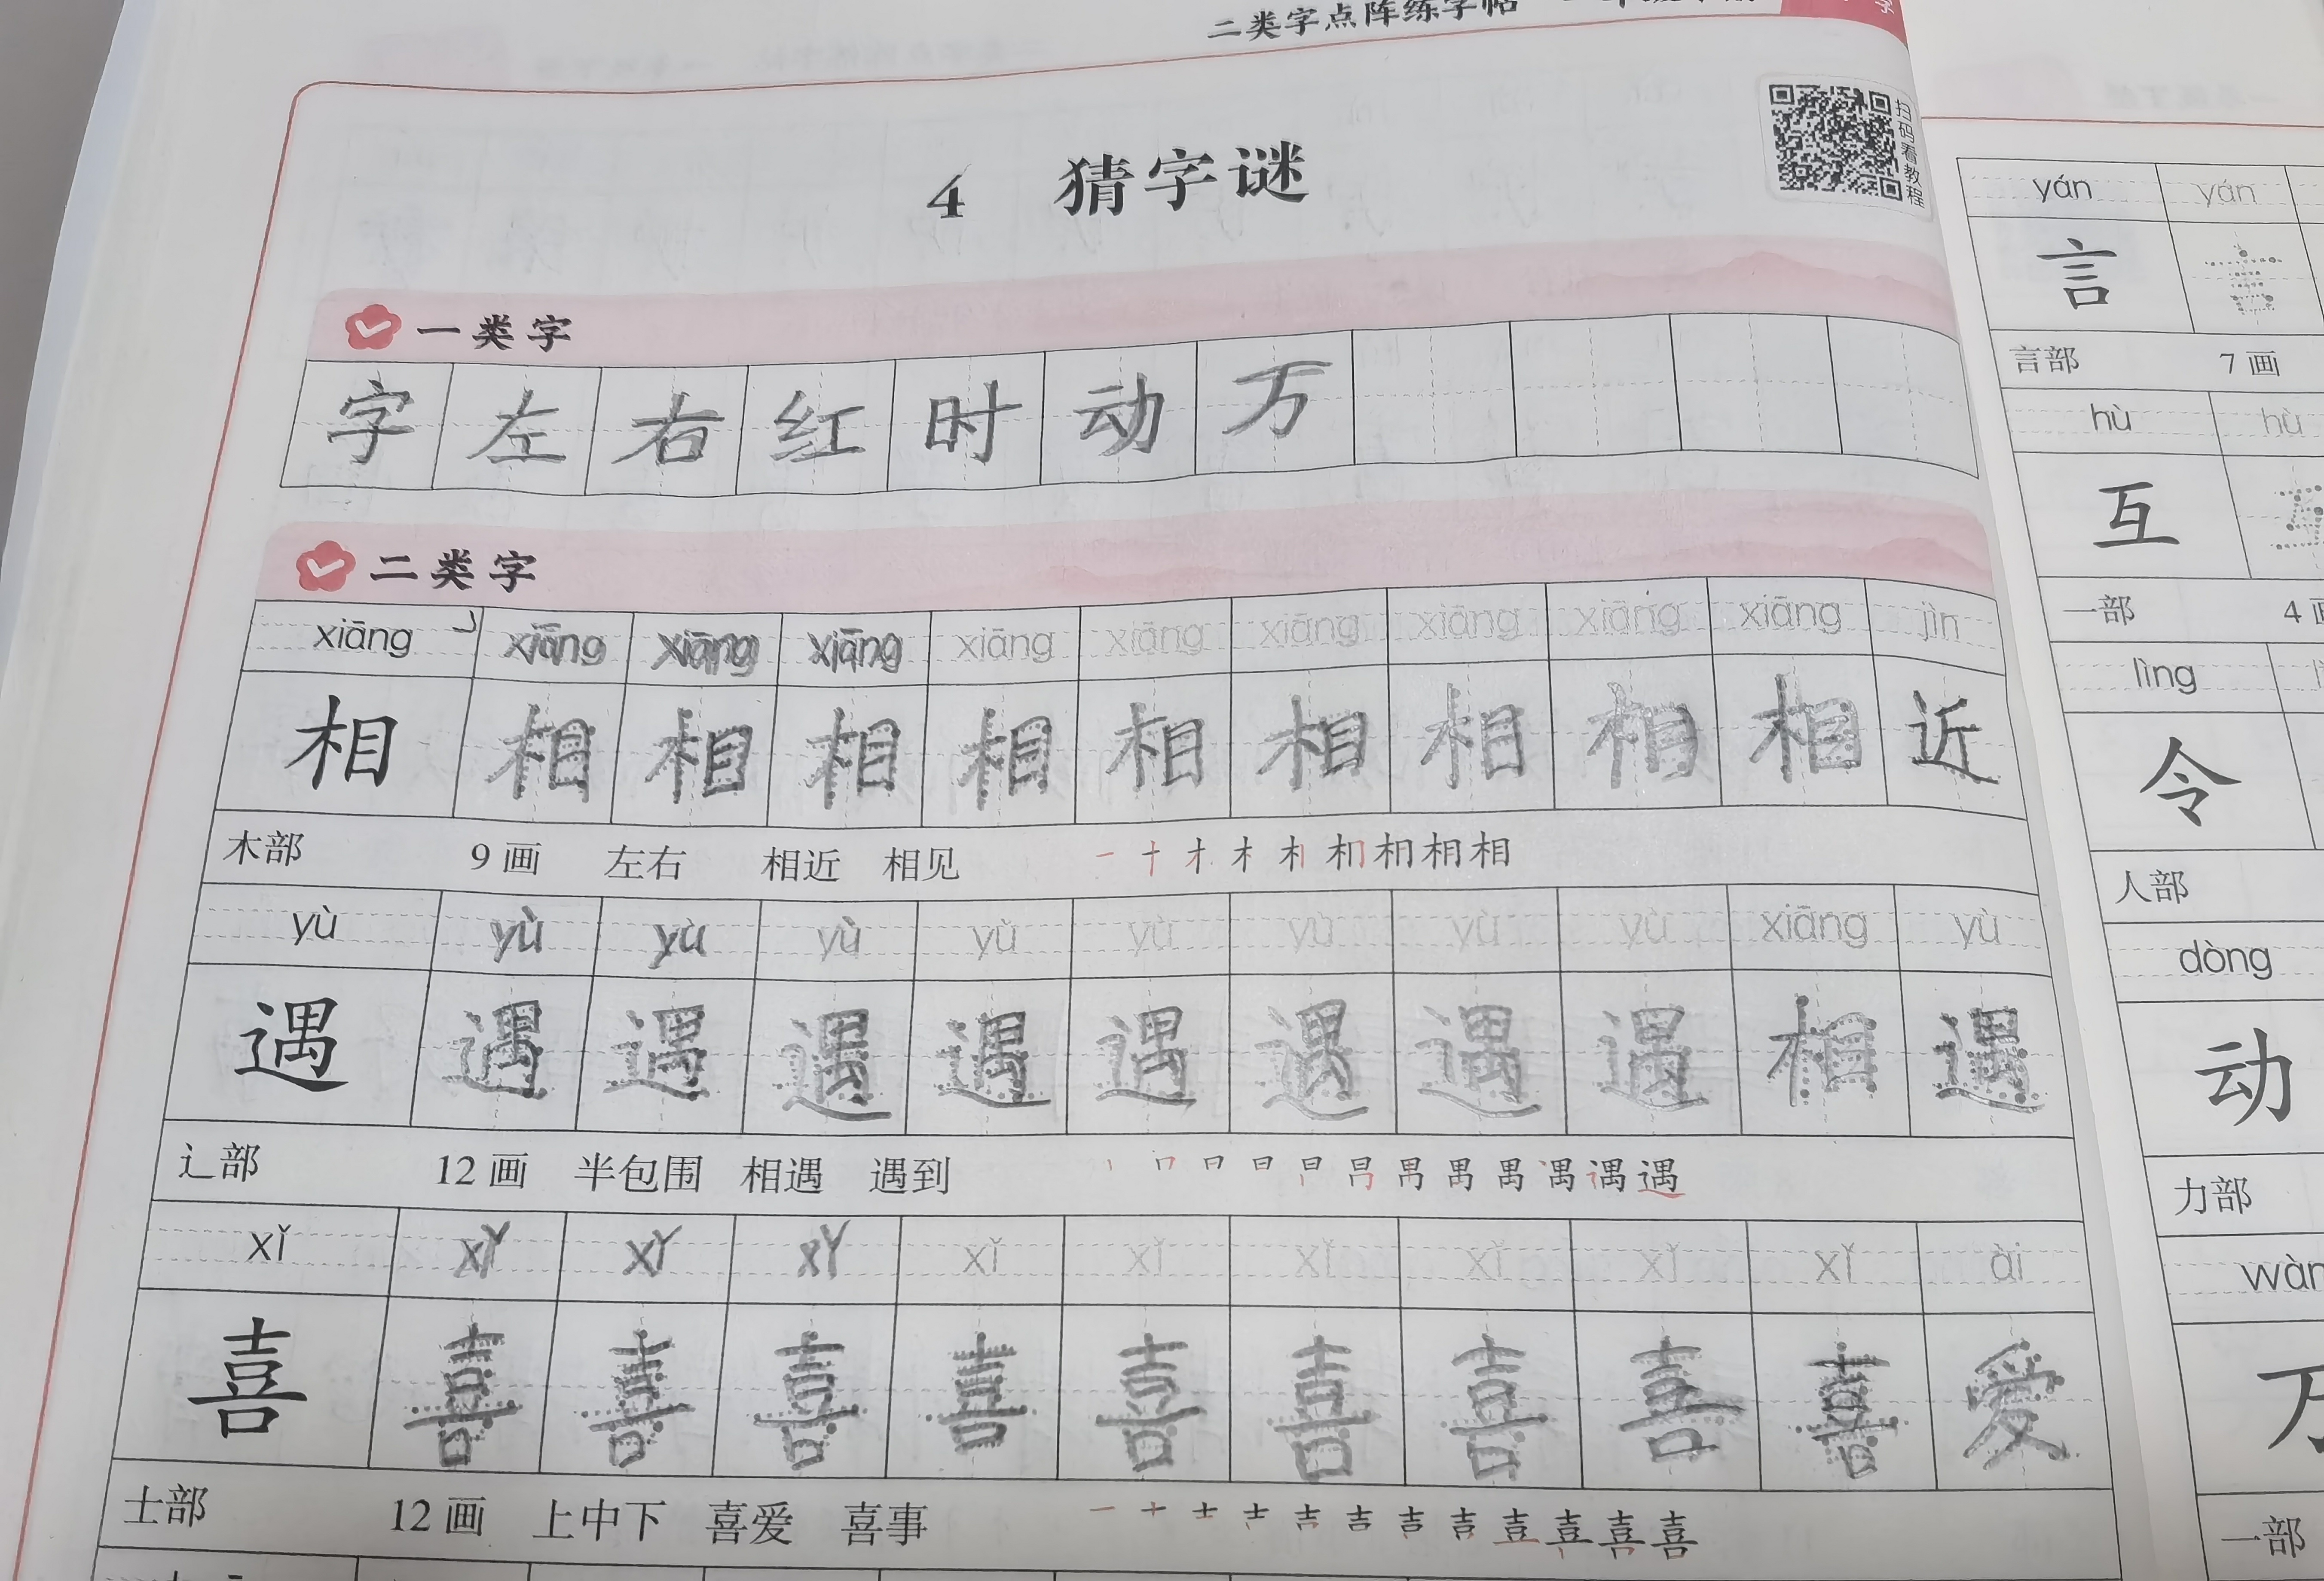 二类字点阵练字帖
扫码看教程
4 猜字谜
一类字
字 左 右 红 时 动 万
二类字
xiāng xiāng xiāng xiāng xiāng xiāng xiāng xiāng xiāng xiāng jìn
相 相 相 相 相 相 相 相 相 相 近
木部 9画 左右 相近 相见 相
yù yù yù yù yù yù yù yù yù xiāng yù
遇 遇 遇 遇 遇 遇 遇 遇 遇 相 遇
辶部 12画 半包围 相遇 遇到 遇
xǐ xǐ xǐ xǐ xǐ xǐ xǐ xǐ xǐ xǐ ài
喜 喜 喜 喜 喜 喜 喜 喜 喜 喜 爱
士部 12画 上中下 喜爱 喜事 喜
yán yán
言 言
言部 7画
hù hù
互 互
一部 4画
lìng
令
人部
dòng
动
力部
万
一部